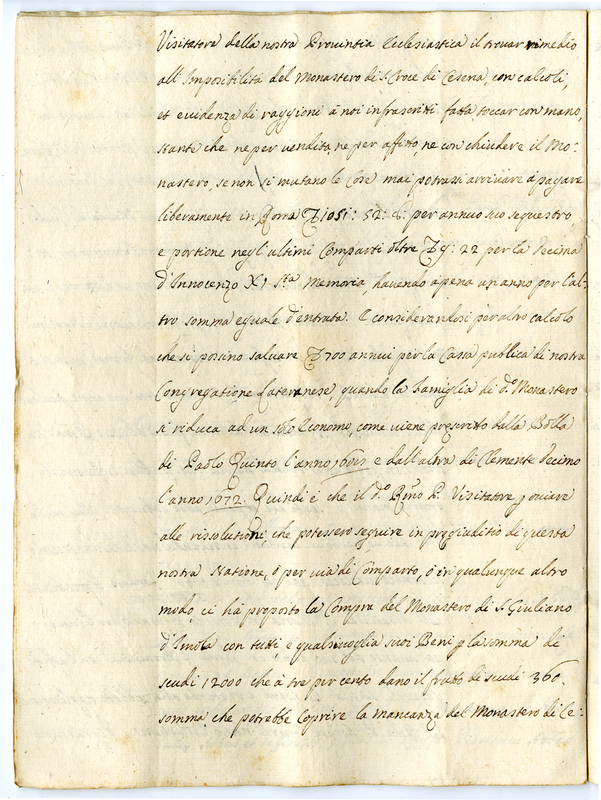 Visitatore della nostra Provintia Ecclesiastica il trovar rimedio
all'Impossibilità del Monastero di S. Croce di Cesena, con calcoli,
et evidenza di raggioni à noi infrascritti fatta toccar con mano,
stante che ne per vendita, ne per affitto, ne con chiudere il Mo-
nastero, se non si mutano le Cose mai potrassi arrivare à pagare
liberamente in Roma 1051: 52: per annuo suo sequestro
e portione negl'ultimi Comparti oltre 9: 22 per la Decima
d'Innocenzo XI Sta. memoria, havendo apena un anno per l'al-
tro somma eguale d'entrata. E considerandosi per altro calcolo
che si possino salvare 700 annui per la Cassa publica di nostra
Congregatione Lateranese, quando la famiglia di do. Monastero
si riduca ad un solo Economo, come viene prescritto dalla Bolla
di Paolo Quinto l'anno 1612 e dall'altra di Clemente decimo
l'anno 1072. Quindi è che il do. Rmo P. Visitatore p oviare
alle rissolutioni, che potessero seguire in pregiuditio di questa
nostra Natione, ò per via di Comparto, ò in qualunque altro
modo, ci hà proposto la Compra del Monastero di S. Giuliano
d'Imola con tutti, e qualsivoglia suoi Beni p la somma di
scudi 12000 che à tre per cento dano il frutto di scudi 360.
somma, che potrebbe coprire la mancanza del Monastero di Ce-